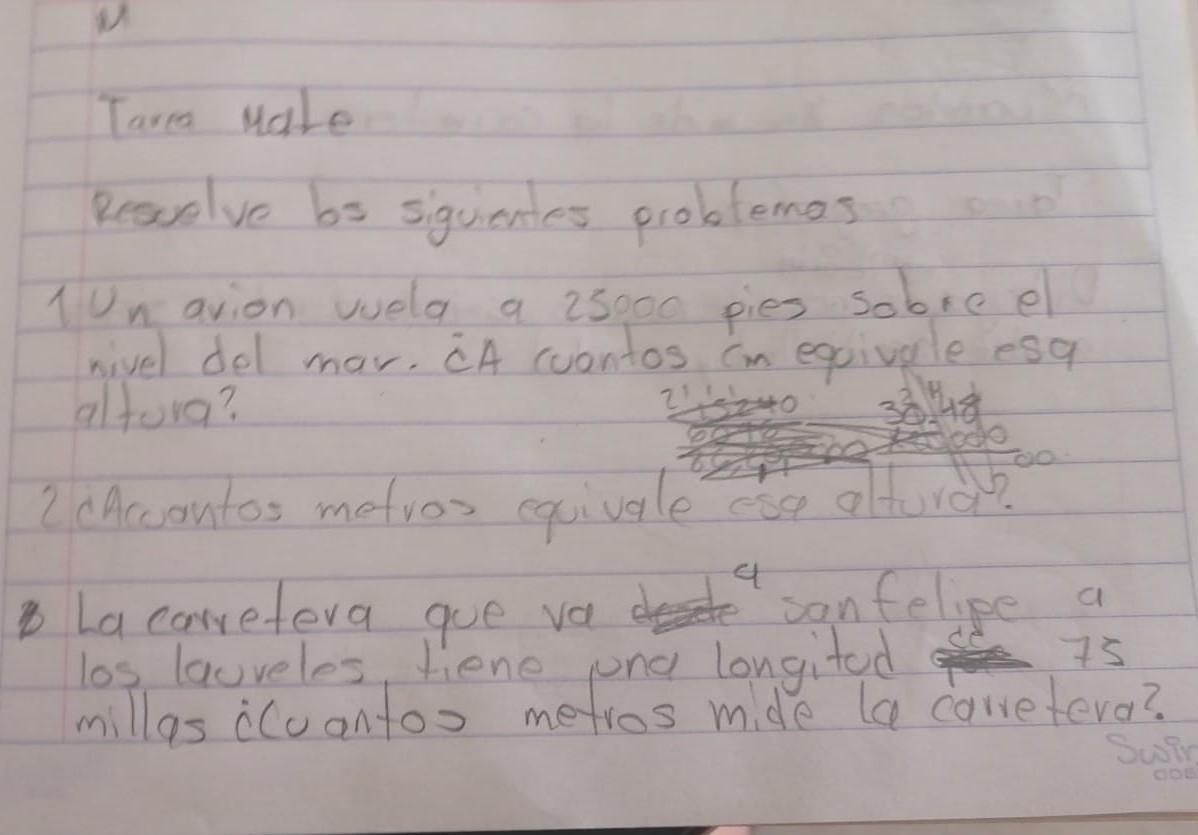 M
Tarea Mate
Resuelve los siguientes problemas
1 Un avion vuela a 25000 pies sobre el
nivel del mar. ¿A cuantos cm equivale esa
altura?
2 ¿A cuantos metros equivale esa altura?
3 La carretera que va a san felipe a
los laureles, tiene una longitud de 75
millas ¿Cuantos metros mide la carretera?